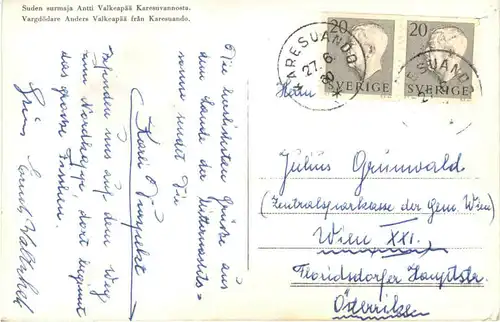 Suden surmaja Antti Valkeapää Karesuvannosta.
Vargdödare Anders Valkeapää från Karesuando.
Die herzlichsten Grüße aus
dem Lande der Mitternachts=
sonne sendet Die
Karin
befinden uns auf dem Weg
zum Nordkapp, dort beginnt
das große
20
20
SVERIGE
SVERIGE
KARESUANDO
27.6.
Herrn
Julius Grünwald
(Zentralsparkasse der Gem. Wien)
Wien XXI.
Floridsdorfer Hauptstr.
Österrike